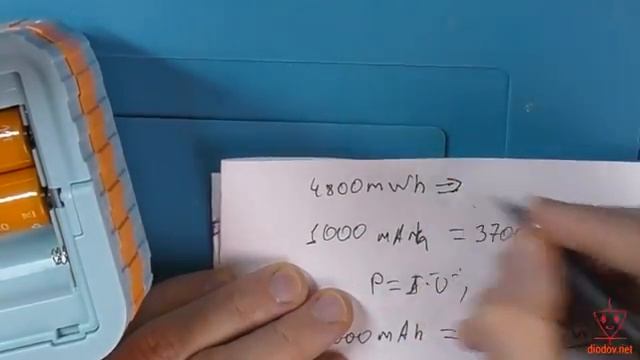 4800mWh ⇒
1000 mA = 370
P = I·U,
000 mAh =
diodov.net